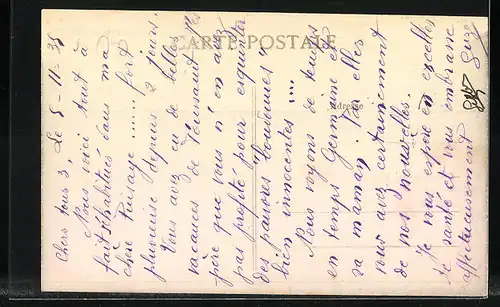 CARTE POSTALE
Adresse
Chers tous 3. Le 5-11-38
Nous voici tout à
fait réhabitués dans ma
chère Puisaye ...... fort
pluvieuse depuis 2 jours.
Vous avez eu de belles
vacances de Toussaint, j'es
père que vous n'en avez
pas profité pour esquinter
des faisans
bien innocentes ....
Nous voyons de temps
en temps Germaine et
sa maman. Par elles
vous avez certainement
de nos nouvelles.
Je vous espère en excellente
santé et vous embrasse
affectueusement Suze